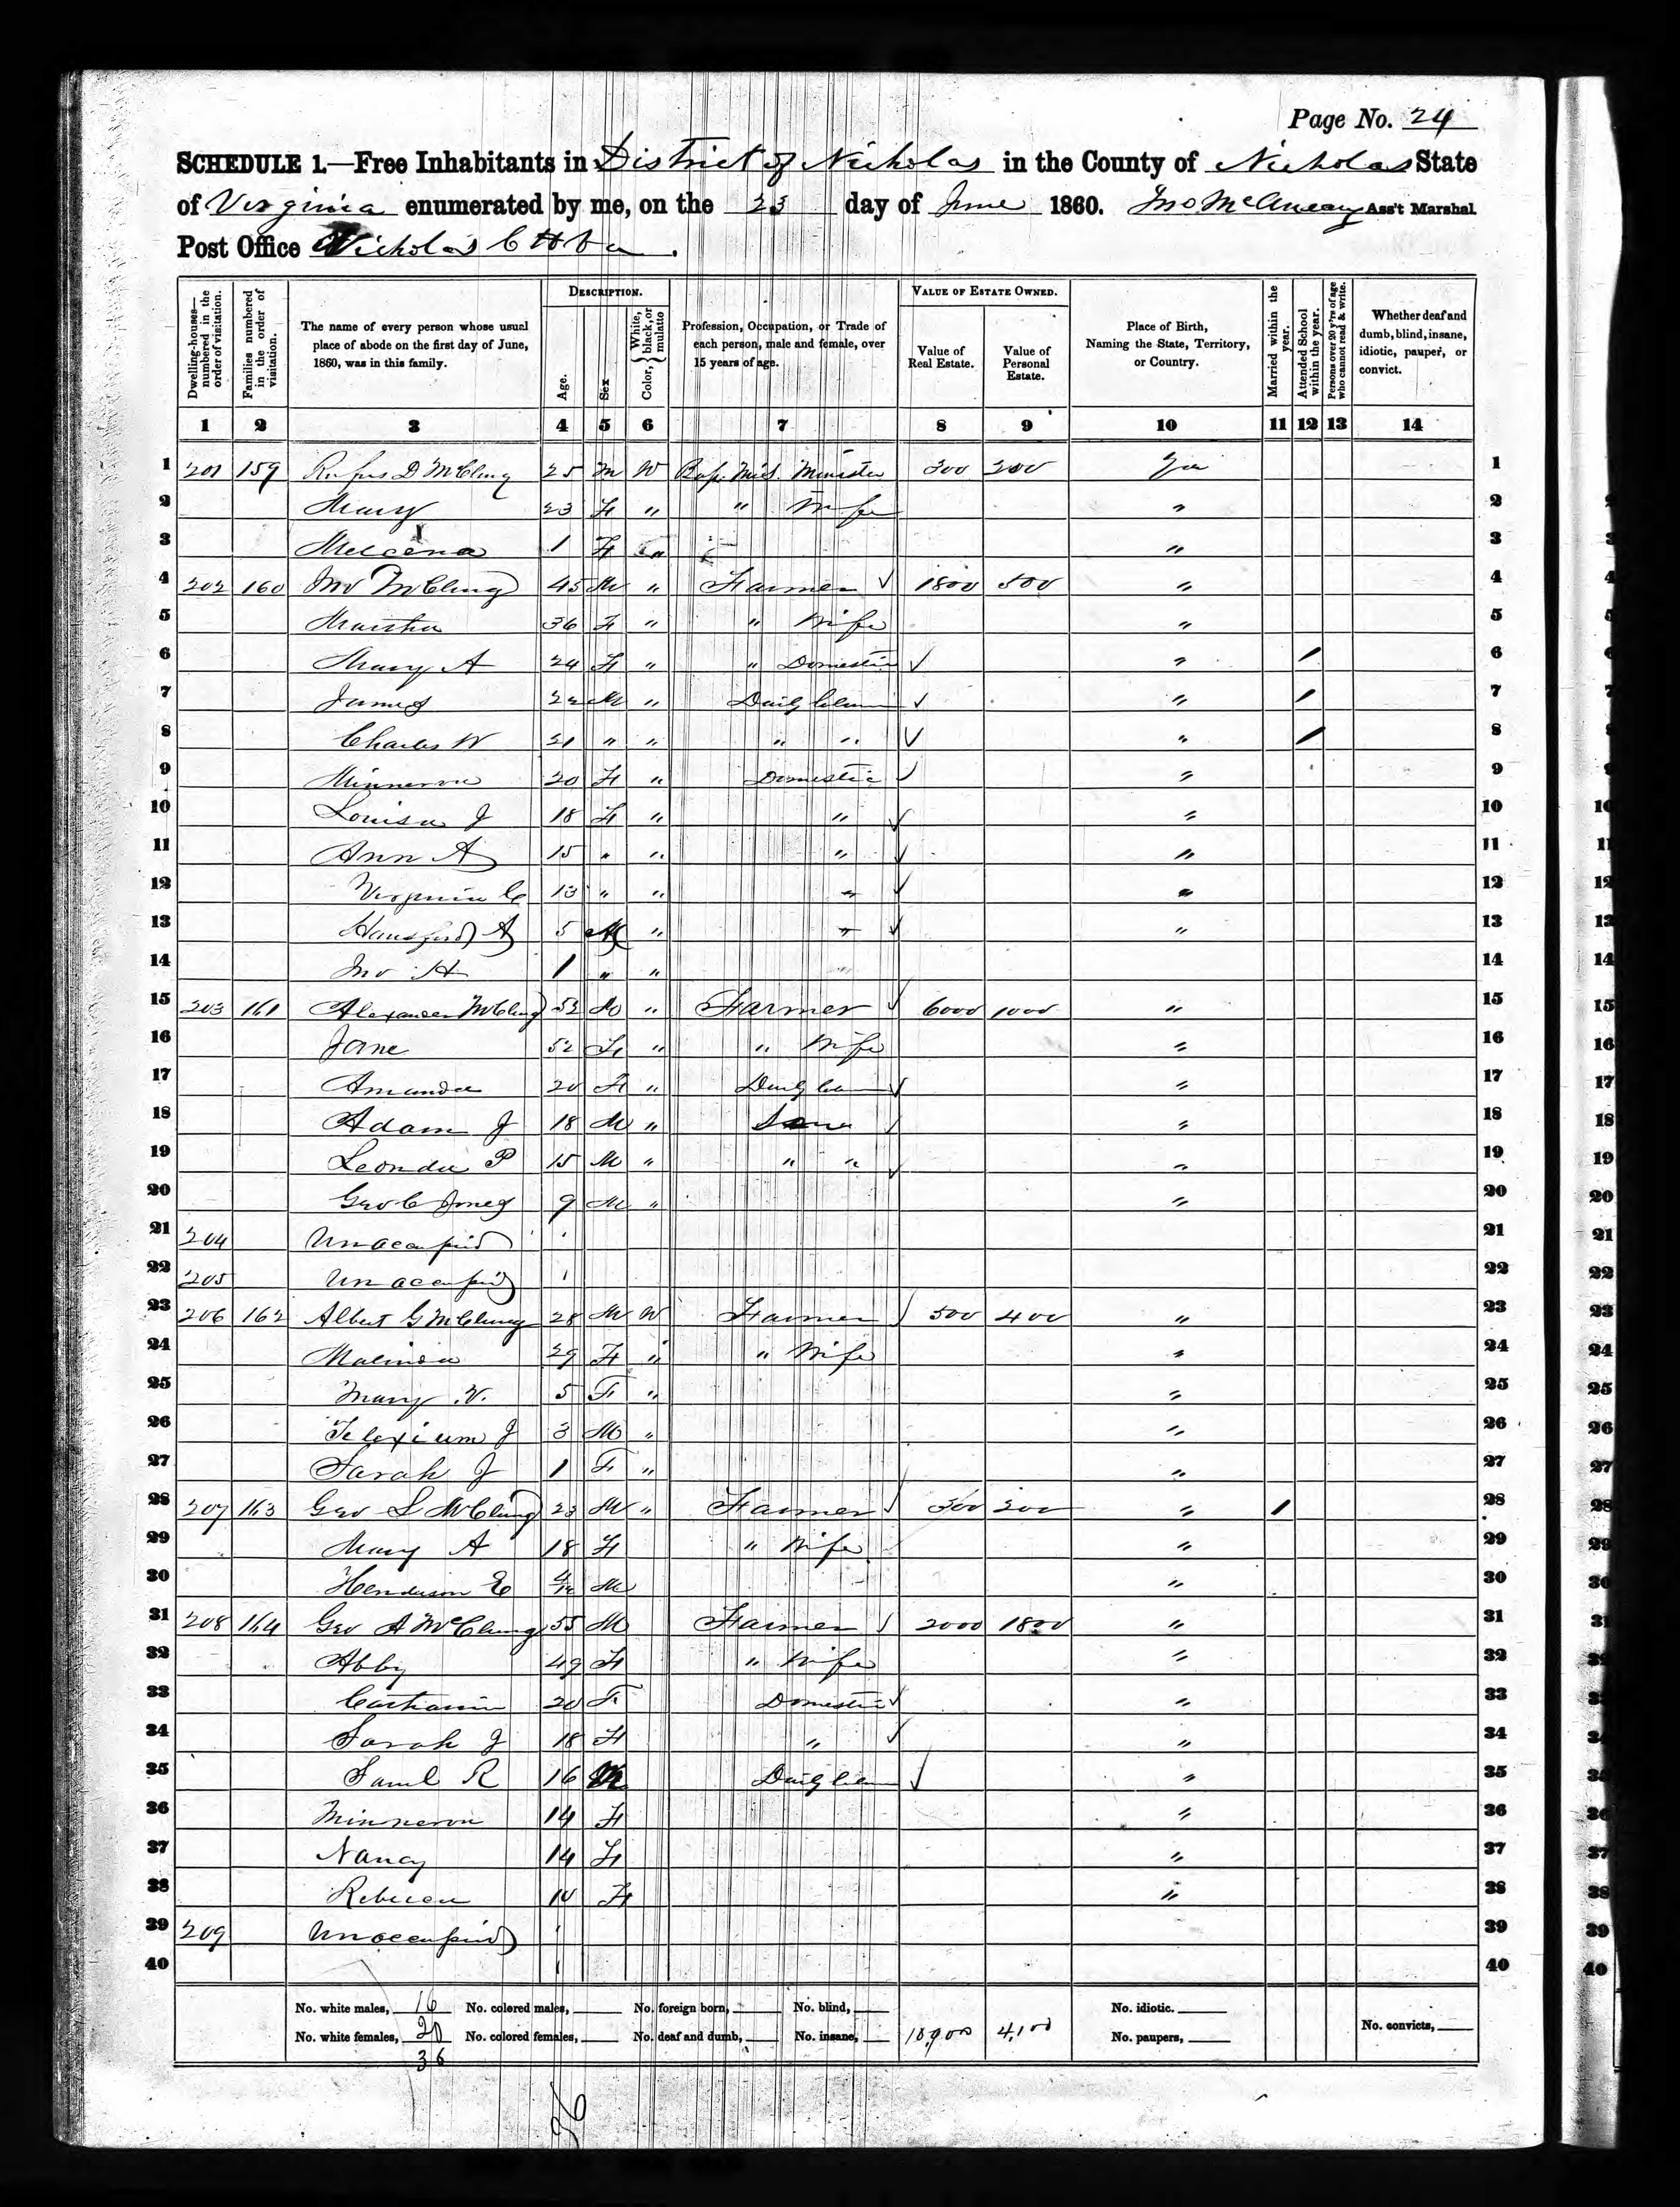 Page No. 24
SCHEDULE 1.—Free Inhabitants in District of Nicholas in the County of Nicholas State
of Virginia enumerated by me, on the 23 day of June 1860. Jno McAneany Ass't Marshal
Post Office Nicholas
Dwelling-houses—numbered in the order of visitation.
Families numbered in the order of visitation.
The name of every person whose usual place of abode on the first day of June, 1860, was in this family.
DESCRIPTION.
Age.
Sex
Color, { White, black, or mulatto
Profession, Occupation, or Trade of each person, male and female, over 15 years of age.
VALUE OF ESTATE OWNED.
Value of Real Estate.
Value of Personal Estate.
Place of Birth, Naming the State, Territory, or Country.
Married within the year.
Attended School within the year.
Persons over 20 y'rs of age who cannot read & write.
Whether deaf and dumb, blind, insane, idiotic, pauper, or convict.
1 2 3 4 5 6 7 8 9 10 11 12 13 14
1 201 159 Rufus D McClung 25 M W Bap. Minister 300 200 Va 1
2 Mary 23 F " " Wife " 2
3 Melcena 1 F " " 3
4 202 160 Jno McClung 45 M " Farmer ✓ 1800 500 " 4
5 Martha 36 F " " Wife " 5
6 Mary A 24 F " " Domestic ✓ " / 6
7 James 22 M " ✓ " / 7
8 Charles W 21 " " " " ✓ " / 8
9 Minnerva 20 F " Domestic ✓ " 9
10 Louisa J 18 F " " ✓ " 10
11 Ann A 15 " " " ✓ " 11
12 Virginia C 13 " " " ✓ " 12
13 Hansford A 5 M " " ✓ " 13
14 Jno H 1 " " " 14
15 203 161 Alexander McClung 53 M " Farmer ✓ 6000 1000 " 15
16 Jane 52 F " " Wife " 16
17 Amanda 20 F " ✓ " 17
18 Adam J 18 M " ✓ " 18
19 Leonda P 15 M " " " ✓ " 19
20 Geo C Jones 9 M " " 20
21 204 Unoccupied 21
22 205 Unoccupied 22
23 206 162 Albert G McClung 28 M W Farmer ✓ 500 400 " 23
24 Malinda 29 F " " Wife " 24
25 Mary V. 5 F " " 25
26 J 3 M " " 26
27 Sarah J 1 F " " 27
28 207 163 Geo L McClung 23 M " Farmer ✓ 300 200 " / 28
29 Mary A 18 F " Wife " 29
30 Henderson E 4/12 M " 30
31 208 164 Geo A McClung 55 M Farmer ✓ 2000 1800 " 31
32 Abby 49 F " Wife " 32
33 Catharin 20 F Domestic ✓ " 33
34 Sarah J 18 F " ✓ " 34
35 Saml R 16 M ✓ " 35
36 Minnerva 14 F " 36
37 Nancy 14 F " 37
38 Rebecca 10 F " 38
39 209 Unoccupied 39
40 40
No. white males, 16 No. colored males, No. foreign born, No. blind, No. idiotic.
No. white females, 20 No. colored females, No. deaf and dumb, No. insane, 10,900 4,100 No. paupers, No. convicts,
36
36